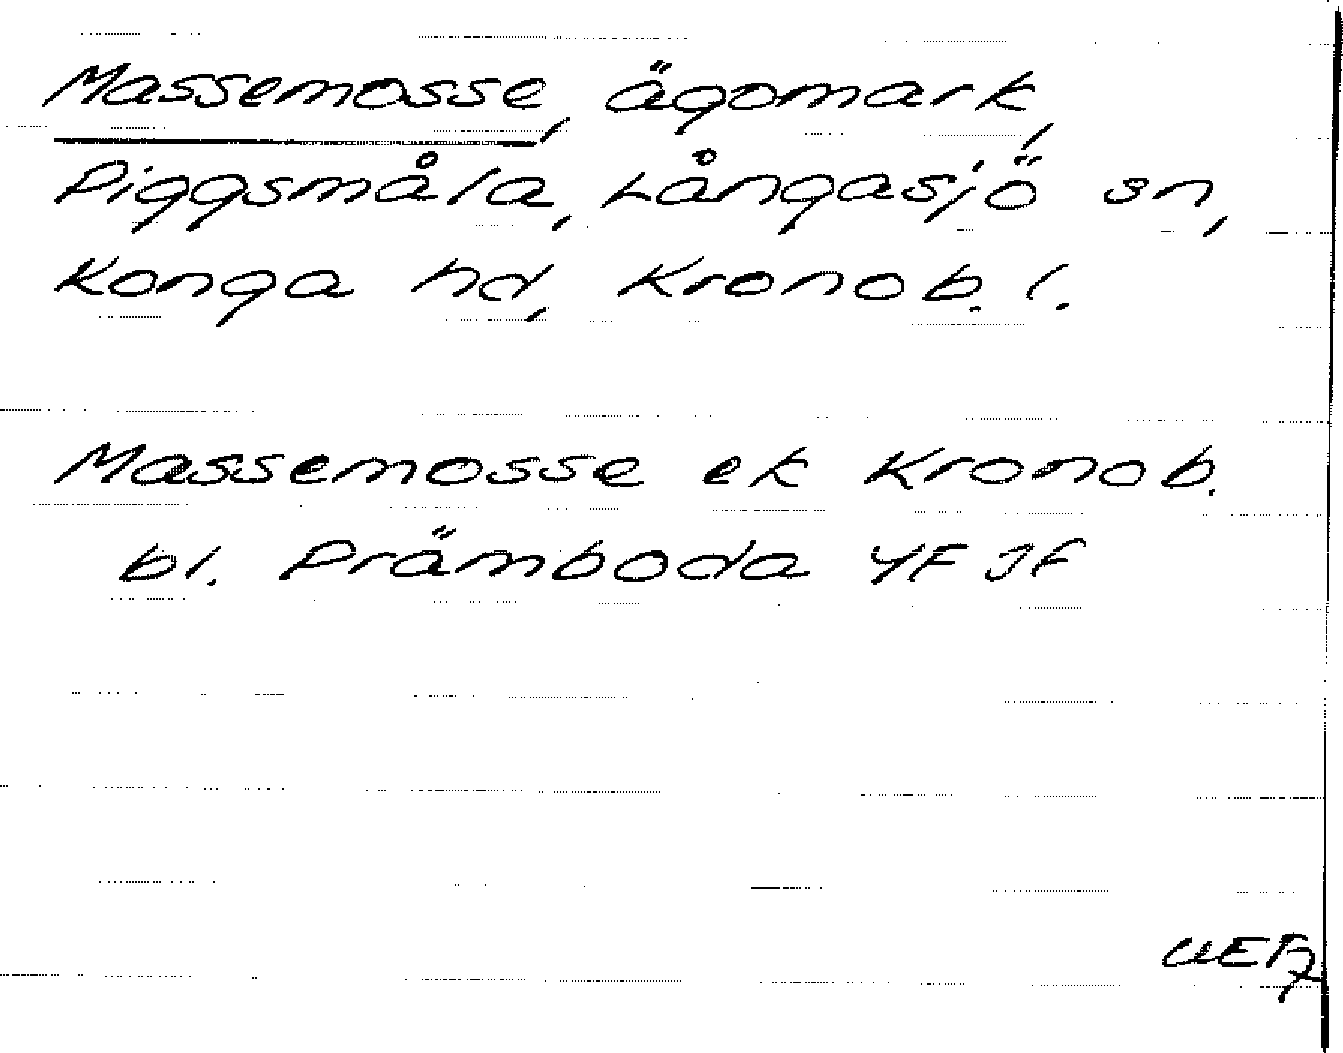 Massemosse, ägomark,
Piggsmåla, Långasjö sn,
Konga hd, Kronob. l.
Massemosse ek Kronob.
bl. Prämboda 4F JF